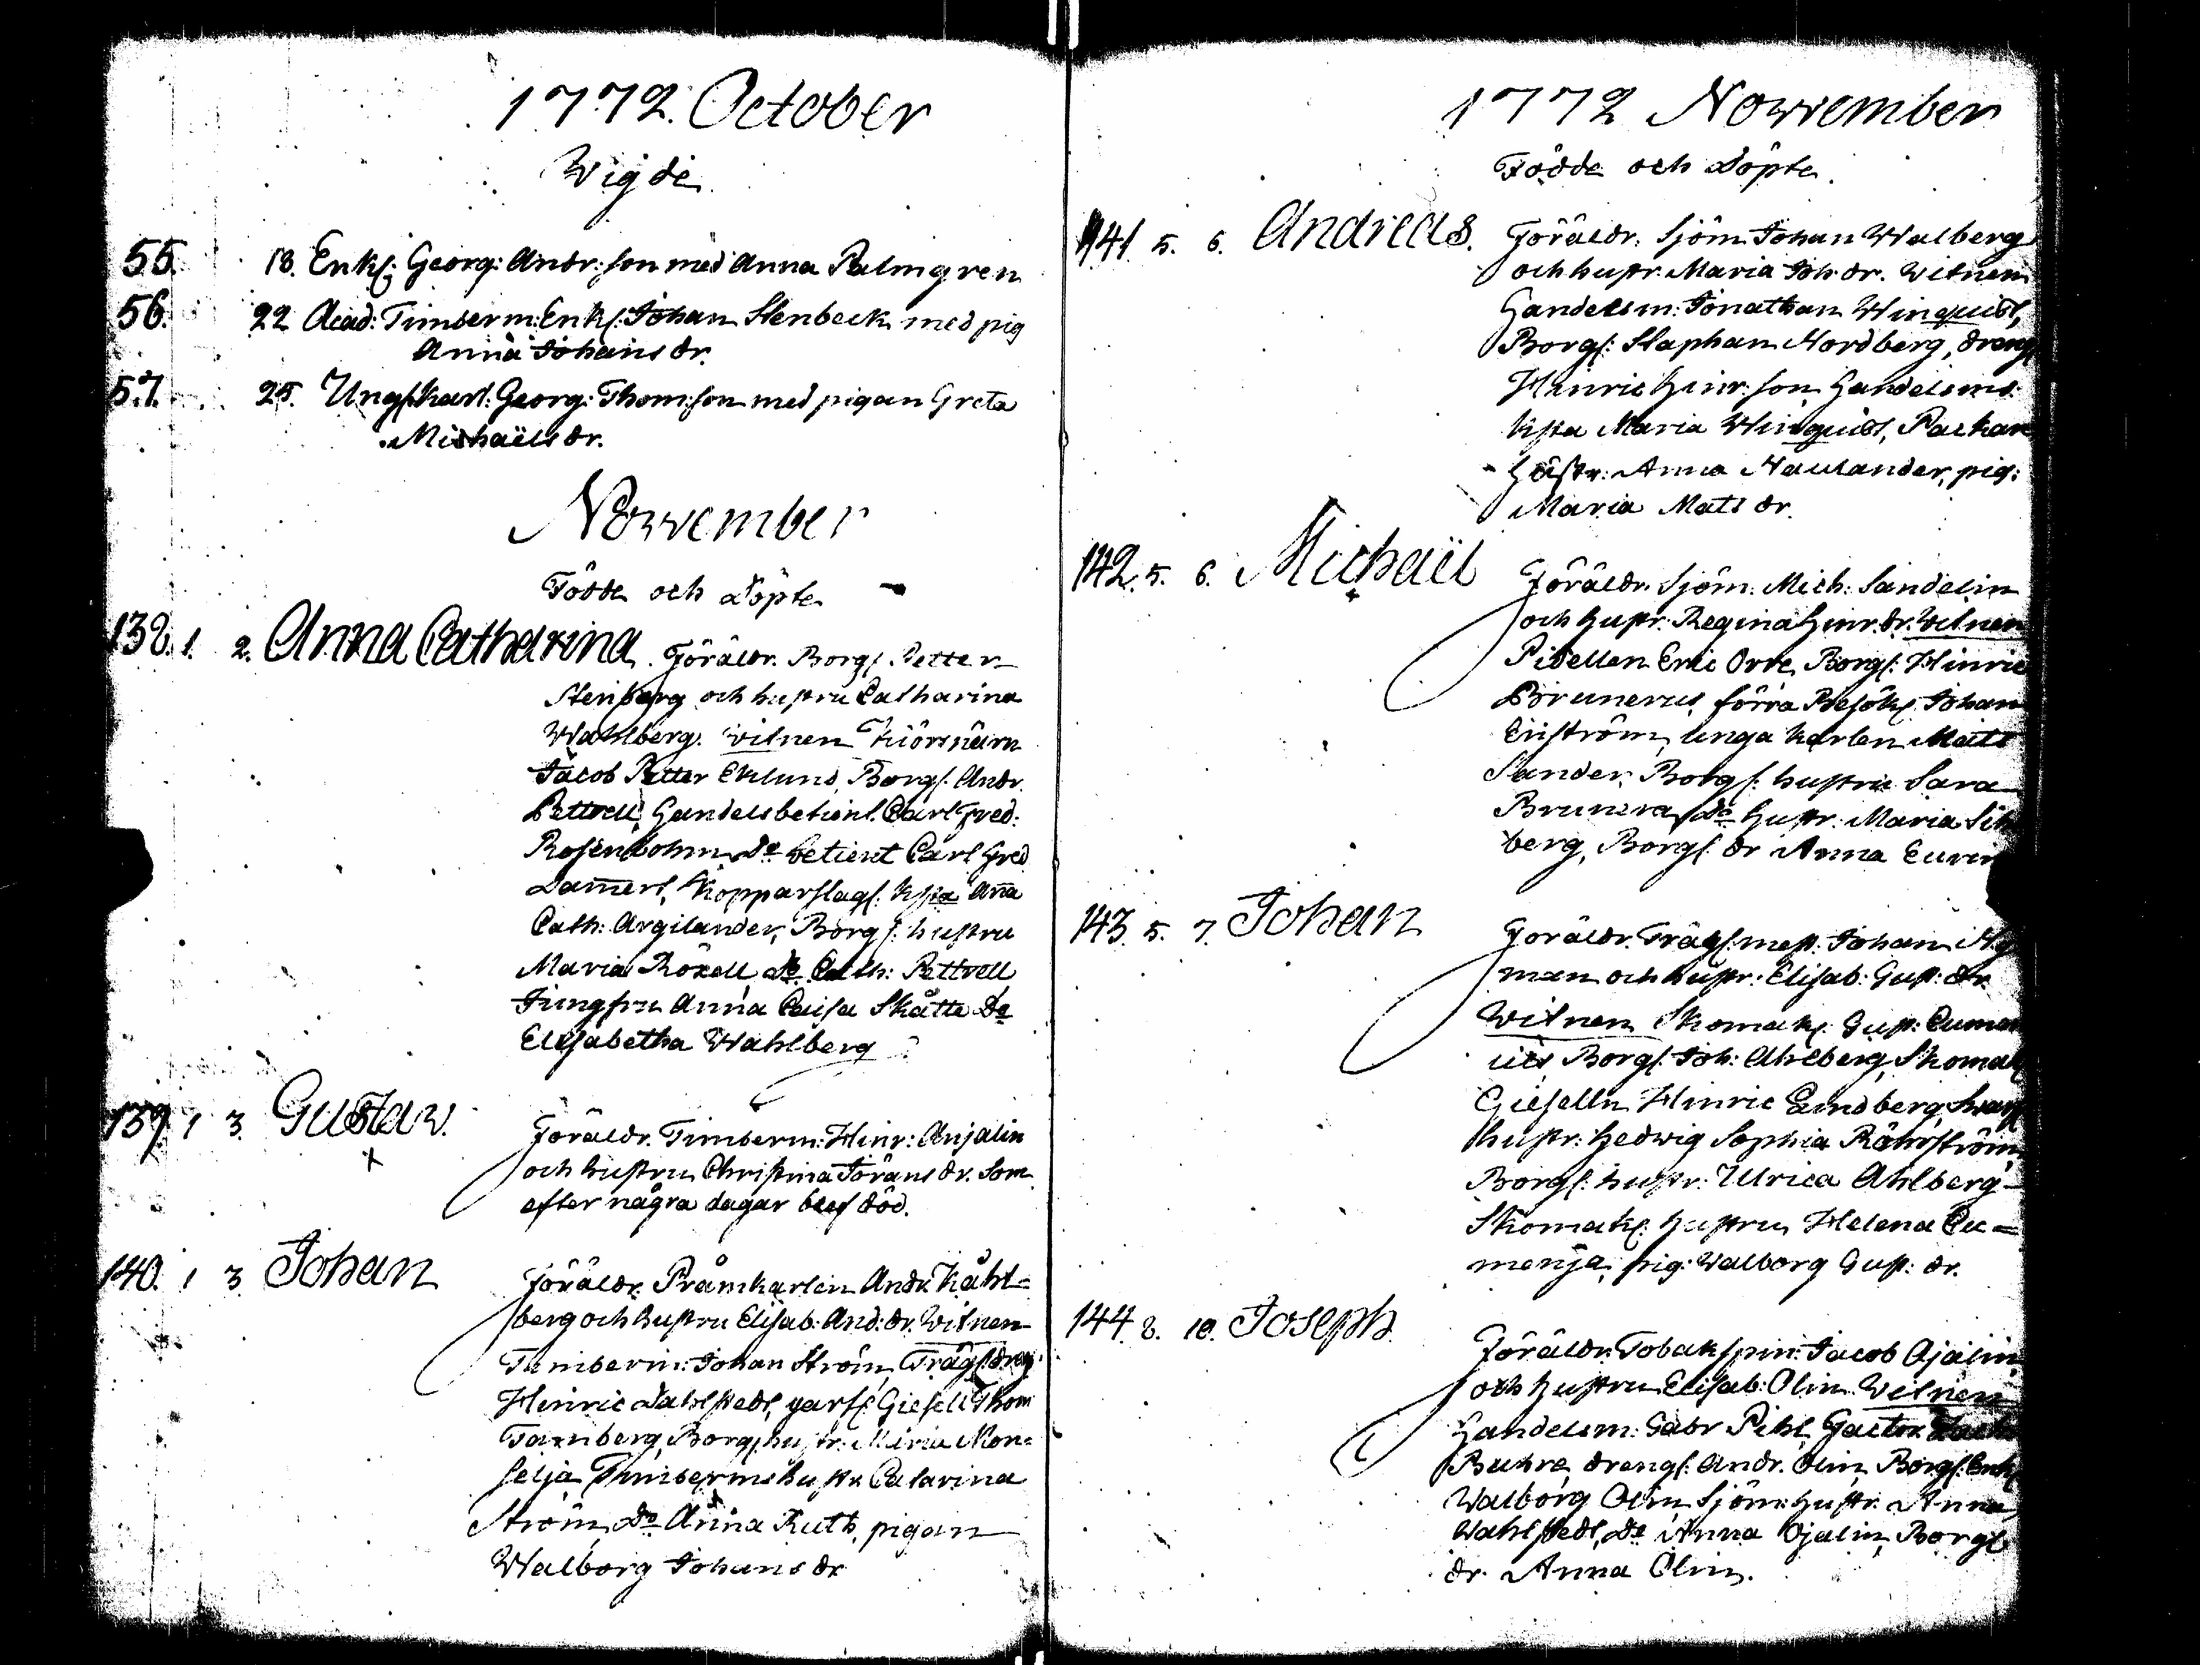 1772. October
Wigde
55. 18. Enkl: Georg: Andr: son med Anna Palmgren
56. 22 Acad: Timberm: Enkl: Johan Stenbeck med pig
Anna Johans dr.
57. 25. Ungkarl: Georg: Thom: son med pigan Greta
Michaëls dr.
November
Födde och Döpte
138. 1. 2. Anna Catharina. Föräldr. Borgs. Petter
Stenberg och hustru Catharina
Wahlberg. Witnen
Jacob Petter Eklund, Borgs. Andr.
Pettrell, Handelsbetient. Carl Fred:
Rosenbohm, Do betient Carl Fred
Kopparslag: Anna
Cath: Argilander, Borgs: hustru
Maria Roxell, Do Cath: Pettrell
Jungfru Anna Caisa Skåtte Do
Elisabetha Wahlberg
139. 1 3. Gustaw. Föräldr. Timberm: Hinr: Anjalin
och hustru Christina Jörans dr. som
efter några dagar blef död.
140. 1 3. Johan Föräldr. Pråmkarlen Andr. Kåhl=
berg och hustru Elisab: And: dr. Witnen
Timberm: Johan Ström, Trägs: dreng
Hinric Dahlstedt, garf: Giesell Thom
Tornberg, Borgs. hustr: Maria Mon=
selja Timberms hustr. Catarina
Ström, Do Anna Ruth, pigan
Walborg Johans dr
1772 November
Födde och Döpte.
141. 5. 6. Andreas. Föräldr: Sjöm. Johan Walberg
och hustr. Maria Joh: dr. Witnen
Handelsm: Jonathan Winquist,
Borgs: Staphan Nordberg, dreng
Hinric Hinr: son, Handelsms:
Maria Winquist, Packar
Hustr: Anna Naulander, pig:
Maria Mats dr.
142. 5. 6. Michaël Föräldr. Sjöm: Mich: Sandelin
och Hustr: Regina Hinr. dr. Witnen
Pidellen Eric Orre, Borgs: Hinric
Brunerus, förra Besök: Johan
Enström, unga karlen Mats
Sander, Borgs: hustru Sara
Brunera, Do Hustr: Maria
berg, Borgs: dr Anna
143. 5. 7. Johan Föräldr. Trägs: mest. Johan
man och hustr: Elisab: Gust: dr.
Witnen Skomak: Gust:
Borgs: Joh: Ahlberg, Skomak
Gieselln Hinric Lindberg, Swarf
hustr: Hedwig Sophia Råhrström,
Borgs: hustr: Ulrica Ahlberg
Skomak: hustru Helena Cu=
menja, pig: Walborg Gust: dr.
144. 8. 10. Joseph. Föräldr. Tobakspin: Jacob Ojalin
och Hustru Elisab: Olin. Witnen
Handelsm: Gabr Pihl, Factor
Buhre, drengs: Andr. Olin, Borgs. Enk:
Walborg Olin, Sjöm: hustr. Anna
Wahlstedt, Do Anna Ojalin, Borgs
dr. Anna Olin.